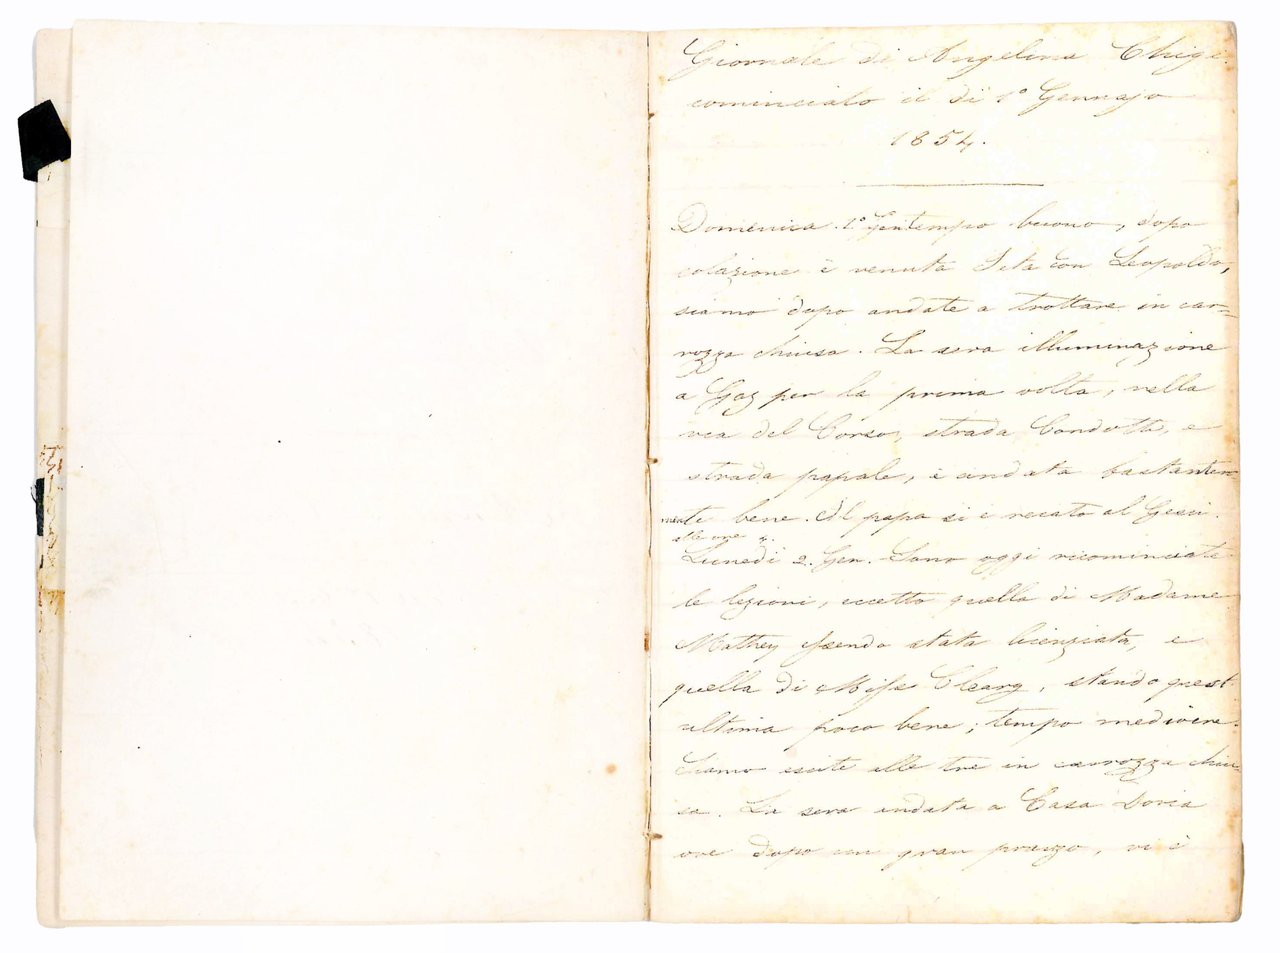 Giornale di Angelina Chigi
cominciato il dì 1° Gennajo
1854.
Domenica 1° Gen tempo buono, dopo
colazione è venuta Teta con Leopoldo,
siamo dopo andate a trottare in car=
rozza chiusa. La sera illuminazione
a Gaz per la prima volta, nella
via del Corso, strada Condotti, e
strada papale, è andata bastantem
mente bene. Il papa si è recato al Gesù.
alle ore 4.
Lunedì 2. Gen. Sono oggi ricominciate
le lezioni, eccetto quella di Madame
Mathey essendo stata licenziata, e
quella di Miss Cleary, stando quest'
ultima poco bene; tempo mediocre.
Siamo escite alle tre in carrozza chiu=
sa. La sera andata a Casa Doria
ove dopo un gran pranzo, vi è